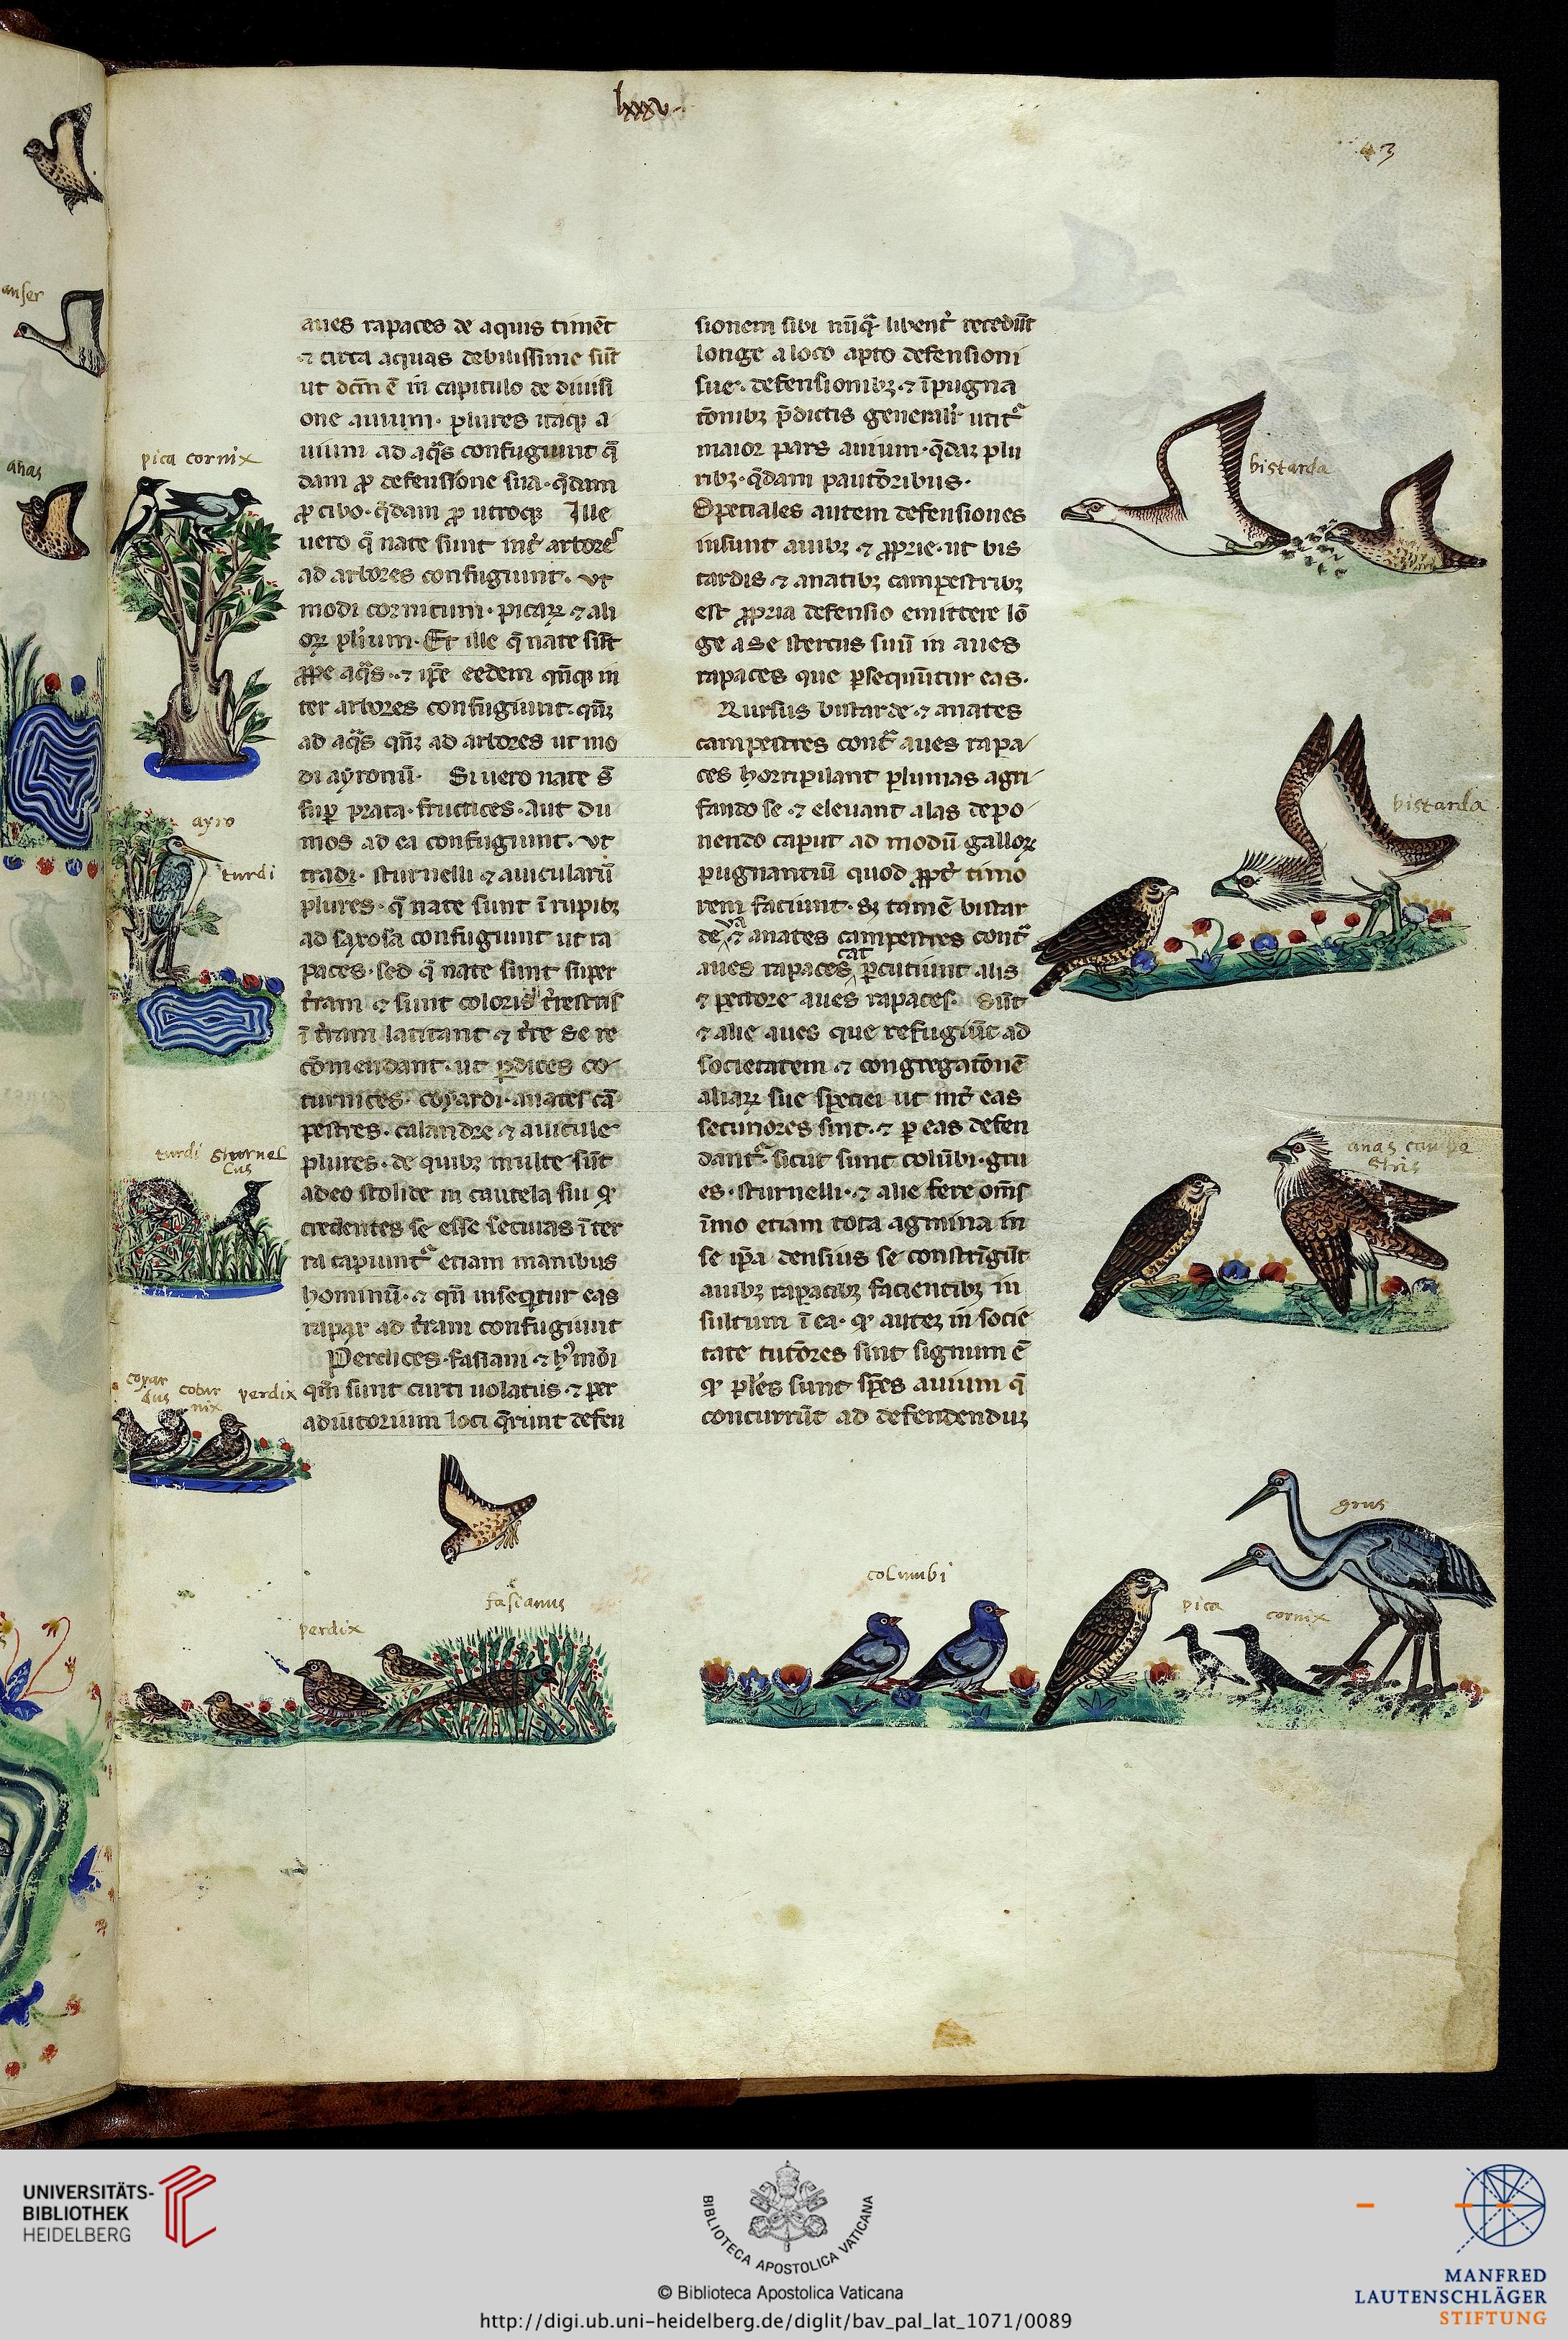 lxxxv.
43
anser
anas
aues rapaces de aquis timēt
⁊ circa aquas debilissime sūt
ut dcm̄ ē in capitulo de diuisi
one auium. plures itaq; a
uium ad aq̄s confugiunt q̄
dam ꝓ defensione sua. q̄dam
ꝓ cibo. q̄dam ꝓ utroq; Ille
uero q̄ nate sunt int̄ arbores
ad arbores confugiunt. vt
modi cornicum. picaꝝ ⁊ ali
oꝝ plīum. Et ille q̄ nate sūt
ꝓpe aq̄s. ⁊ ip̄e eedem qn̄q; in
ter arbores confugiunt. qn̄q;
ad aq̄s qn̄q; ad arbores ut mo
di ayronū. Si uero nate sū
sup prata. fructices. aut du
mos ad ea confugiunt. vt
tradi. sturnelli ⁊ auiculaꝝ
plures. q̄ nate sunt ī rupibꝫ
ad saxosa confugiunt ut ra
paces. sed q̄ nate sunt super
t̄ram ⁊ sunt coloris t̄restris
ī t̄ram latitant ⁊ t̄re se re
cōmendant. ut p̄dices co
turnices. coyardi. anates cā
pestres. calandre ⁊ auicule
plures. de quibꝫ multe sūt
adeo stolide in cautela sui ꝙ
credentes se esse securas ī ter
ra capiunt᷑ etiam manibus
hominū. ⁊ qn̄ insequitur eas
rapax ad t̄ram confugiunt
Perdices. fasiani ⁊ hꝰmōi
qm̄ sunt curti uolatus ⁊ per
adiutorium loci q̄runt defen
sionem sibi nūq̄ libent̄ recedūt
longe a loco apto defensioni
sue. defensionibꝫ ⁊ īpugna
cōnibꝫ p̄dictis generalit̄ utit᷑
maior pars auium. q̄daꝫ plu
ribꝫ. q̄dam paucioribus.
Speciales autem defensiones
insunt auibꝫ ⁊ ꝓprie. ut bis
tardis ⁊ anatibꝫ campestribꝫ
est ꝓpria defensio emittere lō
ge a se stercus suū in aues
rapaces que ꝑsequūtur eas.
Rursus bistarde ⁊ anates
campestres cont̄ aues rapa
ces horripilant plumas agri
fando se ⁊ eleuant alas depo
nendo caput ad modū galloꝝ
pugnantiū quod ꝓpt̄ timo
rem faciunt. sꝫ tamē bistar
de ⁊ anates campestres cont̄
aues rapaces ꝑcutiunt alis
⁊ pectore aues rapaces. Sūt
⁊ alie aues que refugiūt ad
societatem ⁊ congregacōnē
aliaꝝ sue speciei ut int̄ eas
securiores sint. ⁊ ꝑ eas defen
dant᷑. sicut sunt colūbi. gru
es. sturnelli. ⁊ alie fere om̄s
īmo etiam tota agmina in
se ip̄a densius se constrīgūt
auibꝫ rapacibꝫ facientibꝫ in
sultum ī ea. ꝙ auteꝫ in socie
tate tutiores sint signum ē
ꝙ pl̄es sunt sp̄es auium q̄
concurrūt ad defendenduꝫ
pica cornix
ayro
turdi
turdi sturnel
lus
coyar
dus
cotur
nix
perdix
perdix
fasianus
bistarda
bistarda
anas campe
stris
columbi
pica
cornix
grus
UNIVERSITÄTS-
BIBLIOTHEK
HEIDELBERG
BIBLIOTECA APOSTOLICA VATICANA
© Biblioteca Apostolica Vaticana
http://digi.ub.uni-heidelberg.de/diglit/bav_pal_lat_1071/0089
MANFRED
LAUTENSCHLÄGER
STIFTUNG